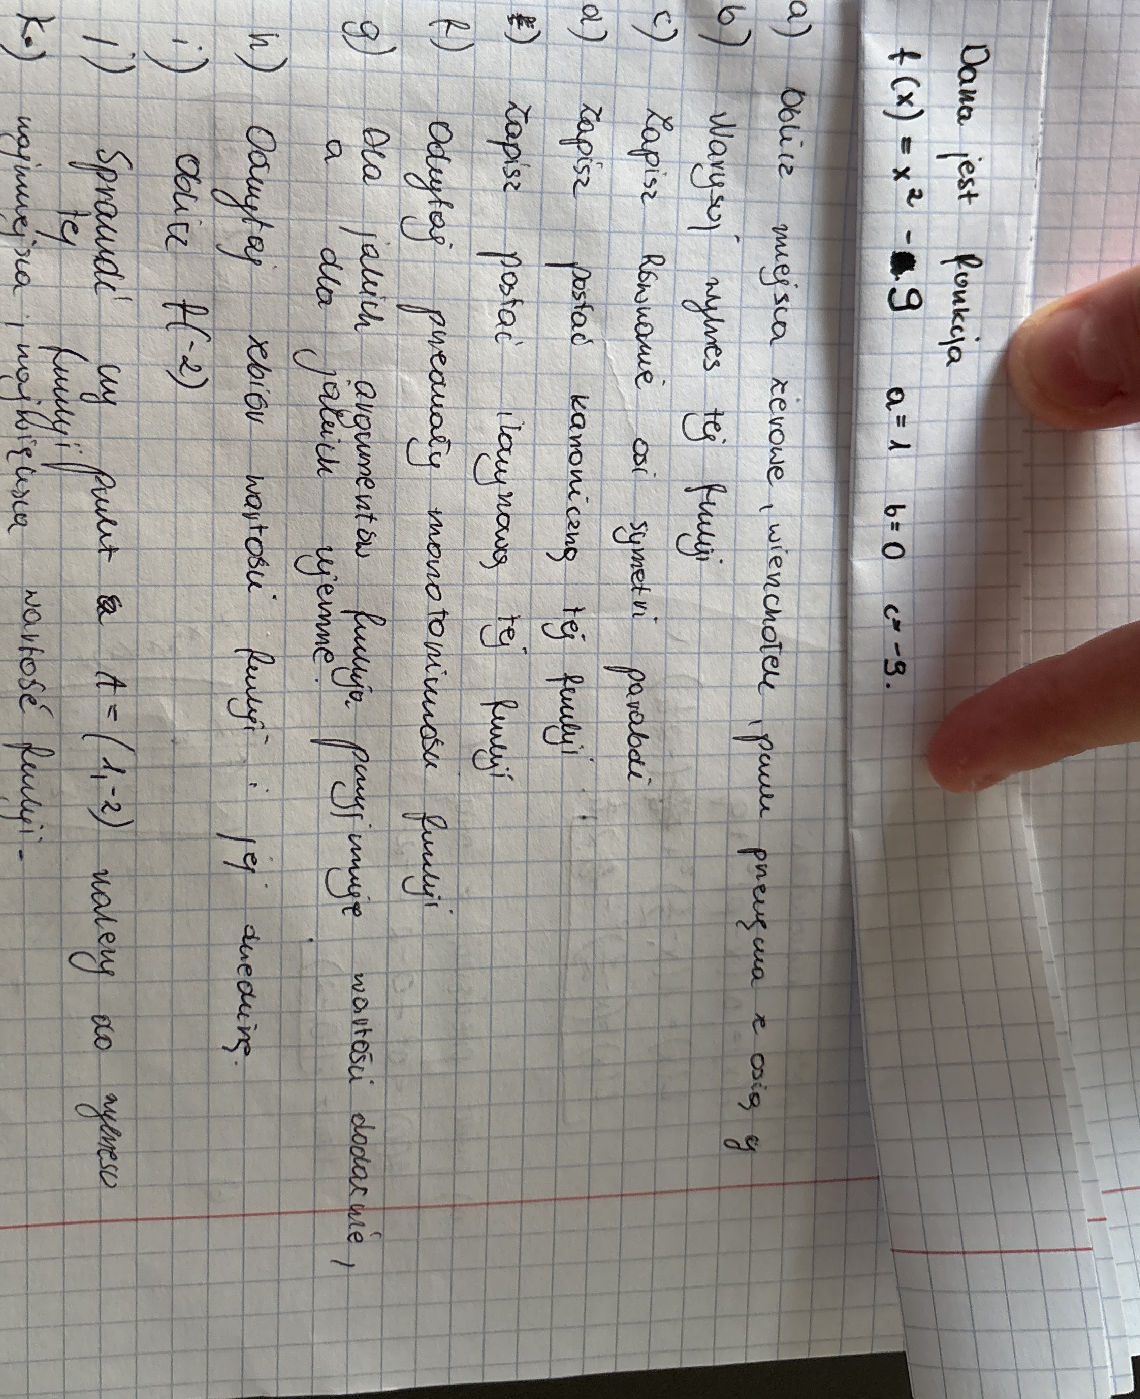 Dana jest funkcja
f(x) = x² - 9 a=1 b=0 c=-9.
a) Oblicz miejsca zerowe, wierzchołek, punkt przecięcia z osią y
b) Narysuj wykres tej funkcji
c) Zapisz Równanie osi symetri paraboli
d) Zapisz postać kanoniczną tej funkcji
e) Zapisz postać iloczynową tej funkcji
f) Odczytaj przedziały monotoniczności funkcji
g) Dla jakich argumentów funkcja przyjmuje wartości dodatnie,
a dla jakich ujemne.
h) Odczytaj zbiór wartości funkcji i jej dziedzinę.
i) Oblicz f(-2)
j) Sprawdź czy punkt A=(1,-2) należy do wykresu
tej funkcji
k) najmniejsza i największa wartość funkcji-